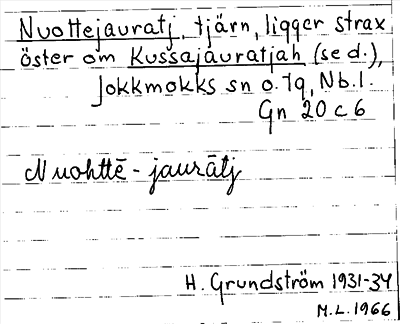 Nuottejauratj, tjärn, ligger strax
öster om Kussajauratjah (se d.),
Jokkmokks sn o. tg, Nb. l.
Gn 20 c 6
Nuohttē - jaurātj
H. Grundström 1931-34
M.L. 1966